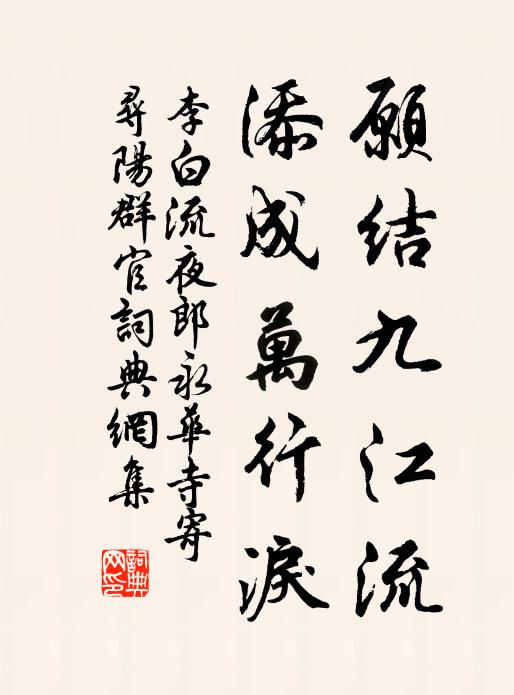 願結九江流
添成萬行淚
李白流夜郎永華寺寄
尋陽群官詞典網集
詞典
网印